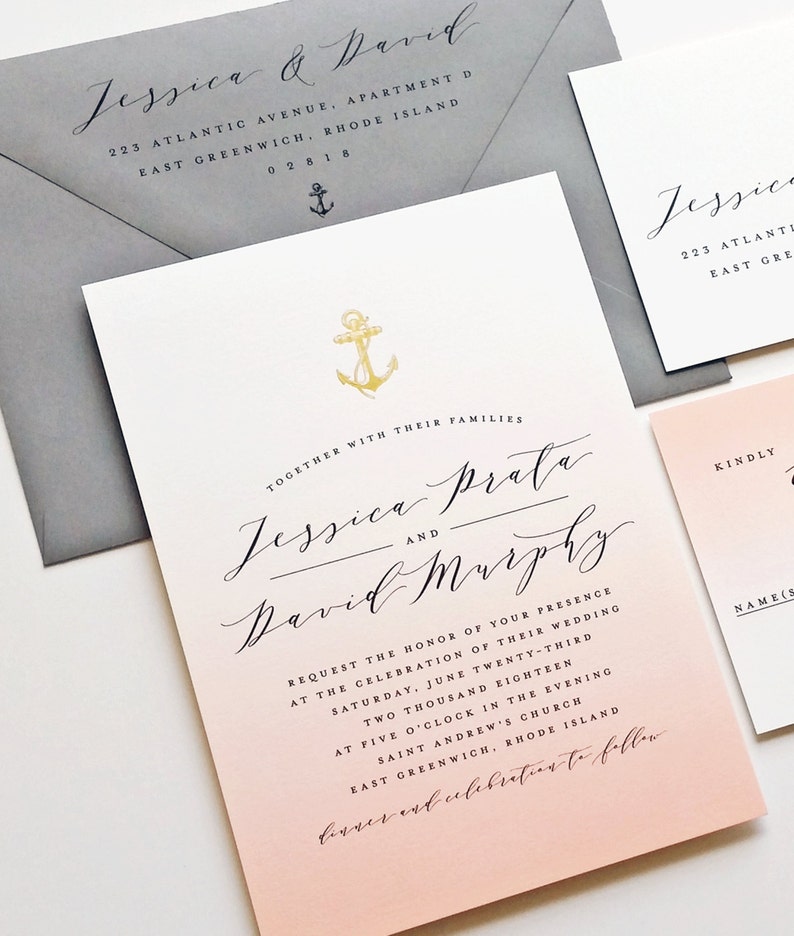 Jessica & David
223 ATLANTIC AVENUE, APARTMENT D
EAST GREENWICH, RHODE ISLAND
02818
TOGETHER WITH THEIR FAMILIES
Jessica Prata
AND
David Murphy
REQUEST THE HONOR OF YOUR PRESENCE
AT THE CELEBRATION OF THEIR WEDDING
SATURDAY, JUNE TWENTY-THIRD
TWO THOUSAND EIGHTEEN
AT FIVE O'CLOCK IN THE EVENING
SAINT ANDREW'S CHURCH
EAST GREENWICH, RHODE ISLAND
dinner and celebration to follow
Jessica
223 ATLANTI
EAST GREE
KINDLY
NAME(S